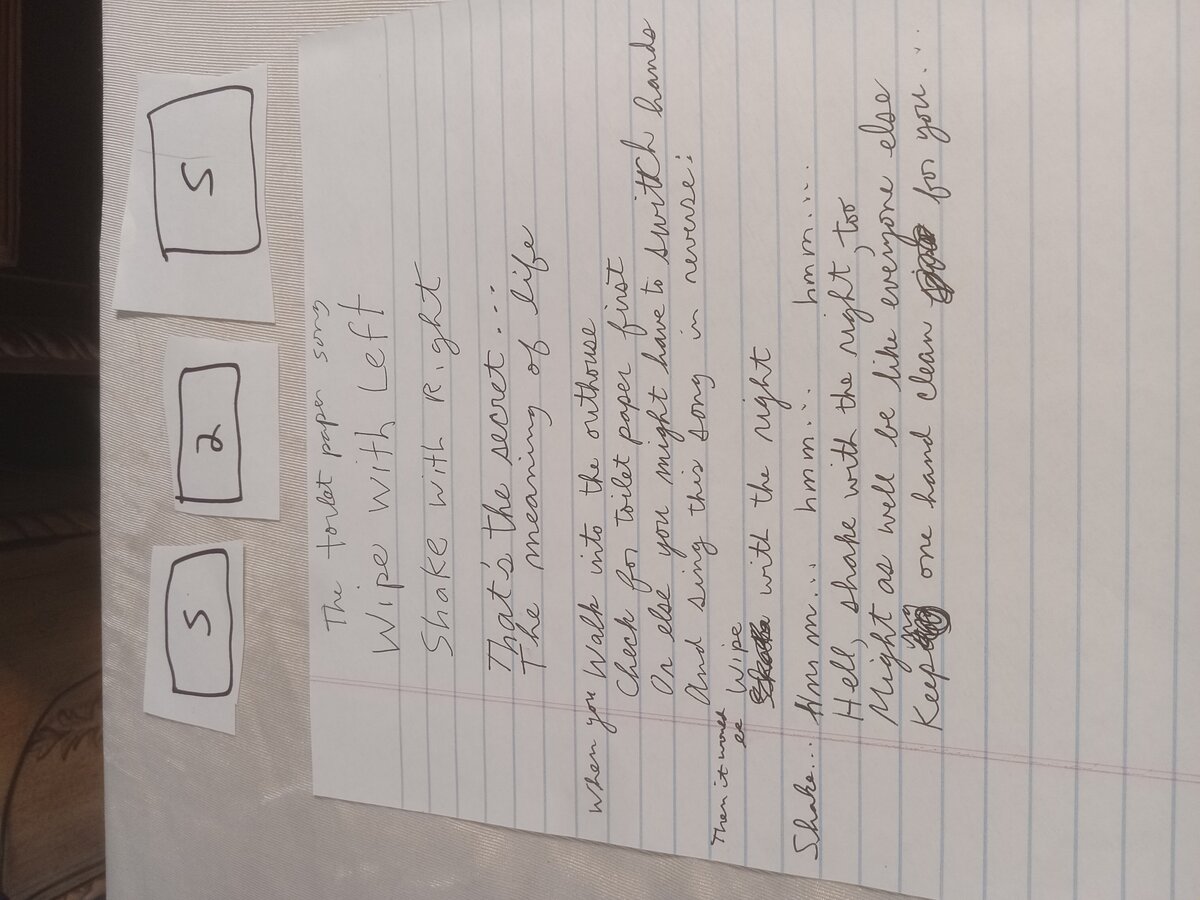 5 2 5
The toilet paper song
Wipe with Left
Shake with Right
That's the secret...
The meaning of life
When you Walk into the outhouse
Check for toilet paper first
Or else you might have to switch hands
And sing this song in reverse:
Then it would be Wipe with the right
Shake... Hmmm... hmm... hmm....
Hell, shake with the right, too
Might as well be like everyone else
Keeping one hand clean for you...